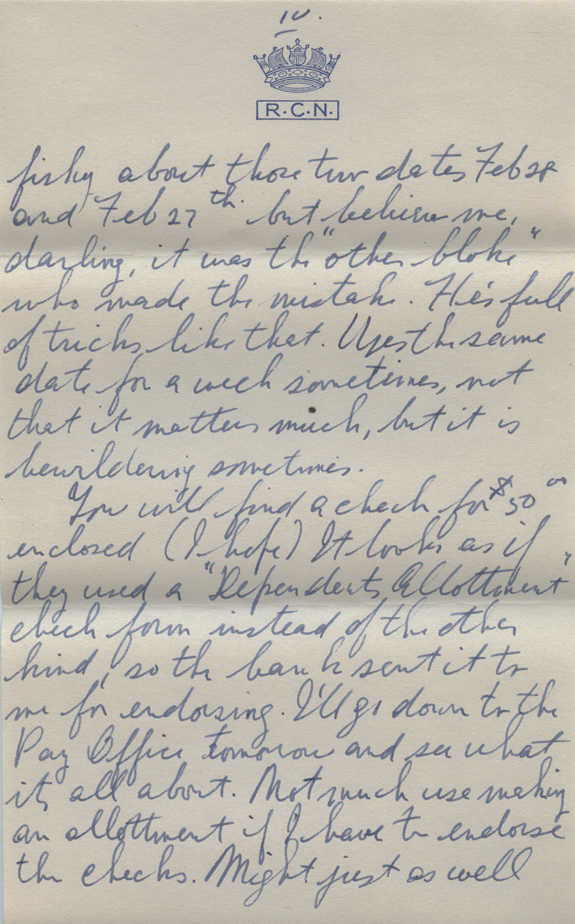 IV.
R.C.N.
fishy about those two dates Feb 28
and Feb 27th but believe me,
darling, it was the "other bloke"
who made the mistake. He's full
of tricks like that. Uses the same
date for a week sometimes, not
that it matters much, but it is
bewildering sometimes.
You will find a check for $50.00
enclosed (I hope) It looks as if
they used a "Dependents Allottment"
check form instead of the other
kind, so the bank sent it to
me for endorsing. I'll go down to the
Pay Office tomorow and see what
it's all about. Not much use making
an allottment if I have to endorse
the checks. Might just as well